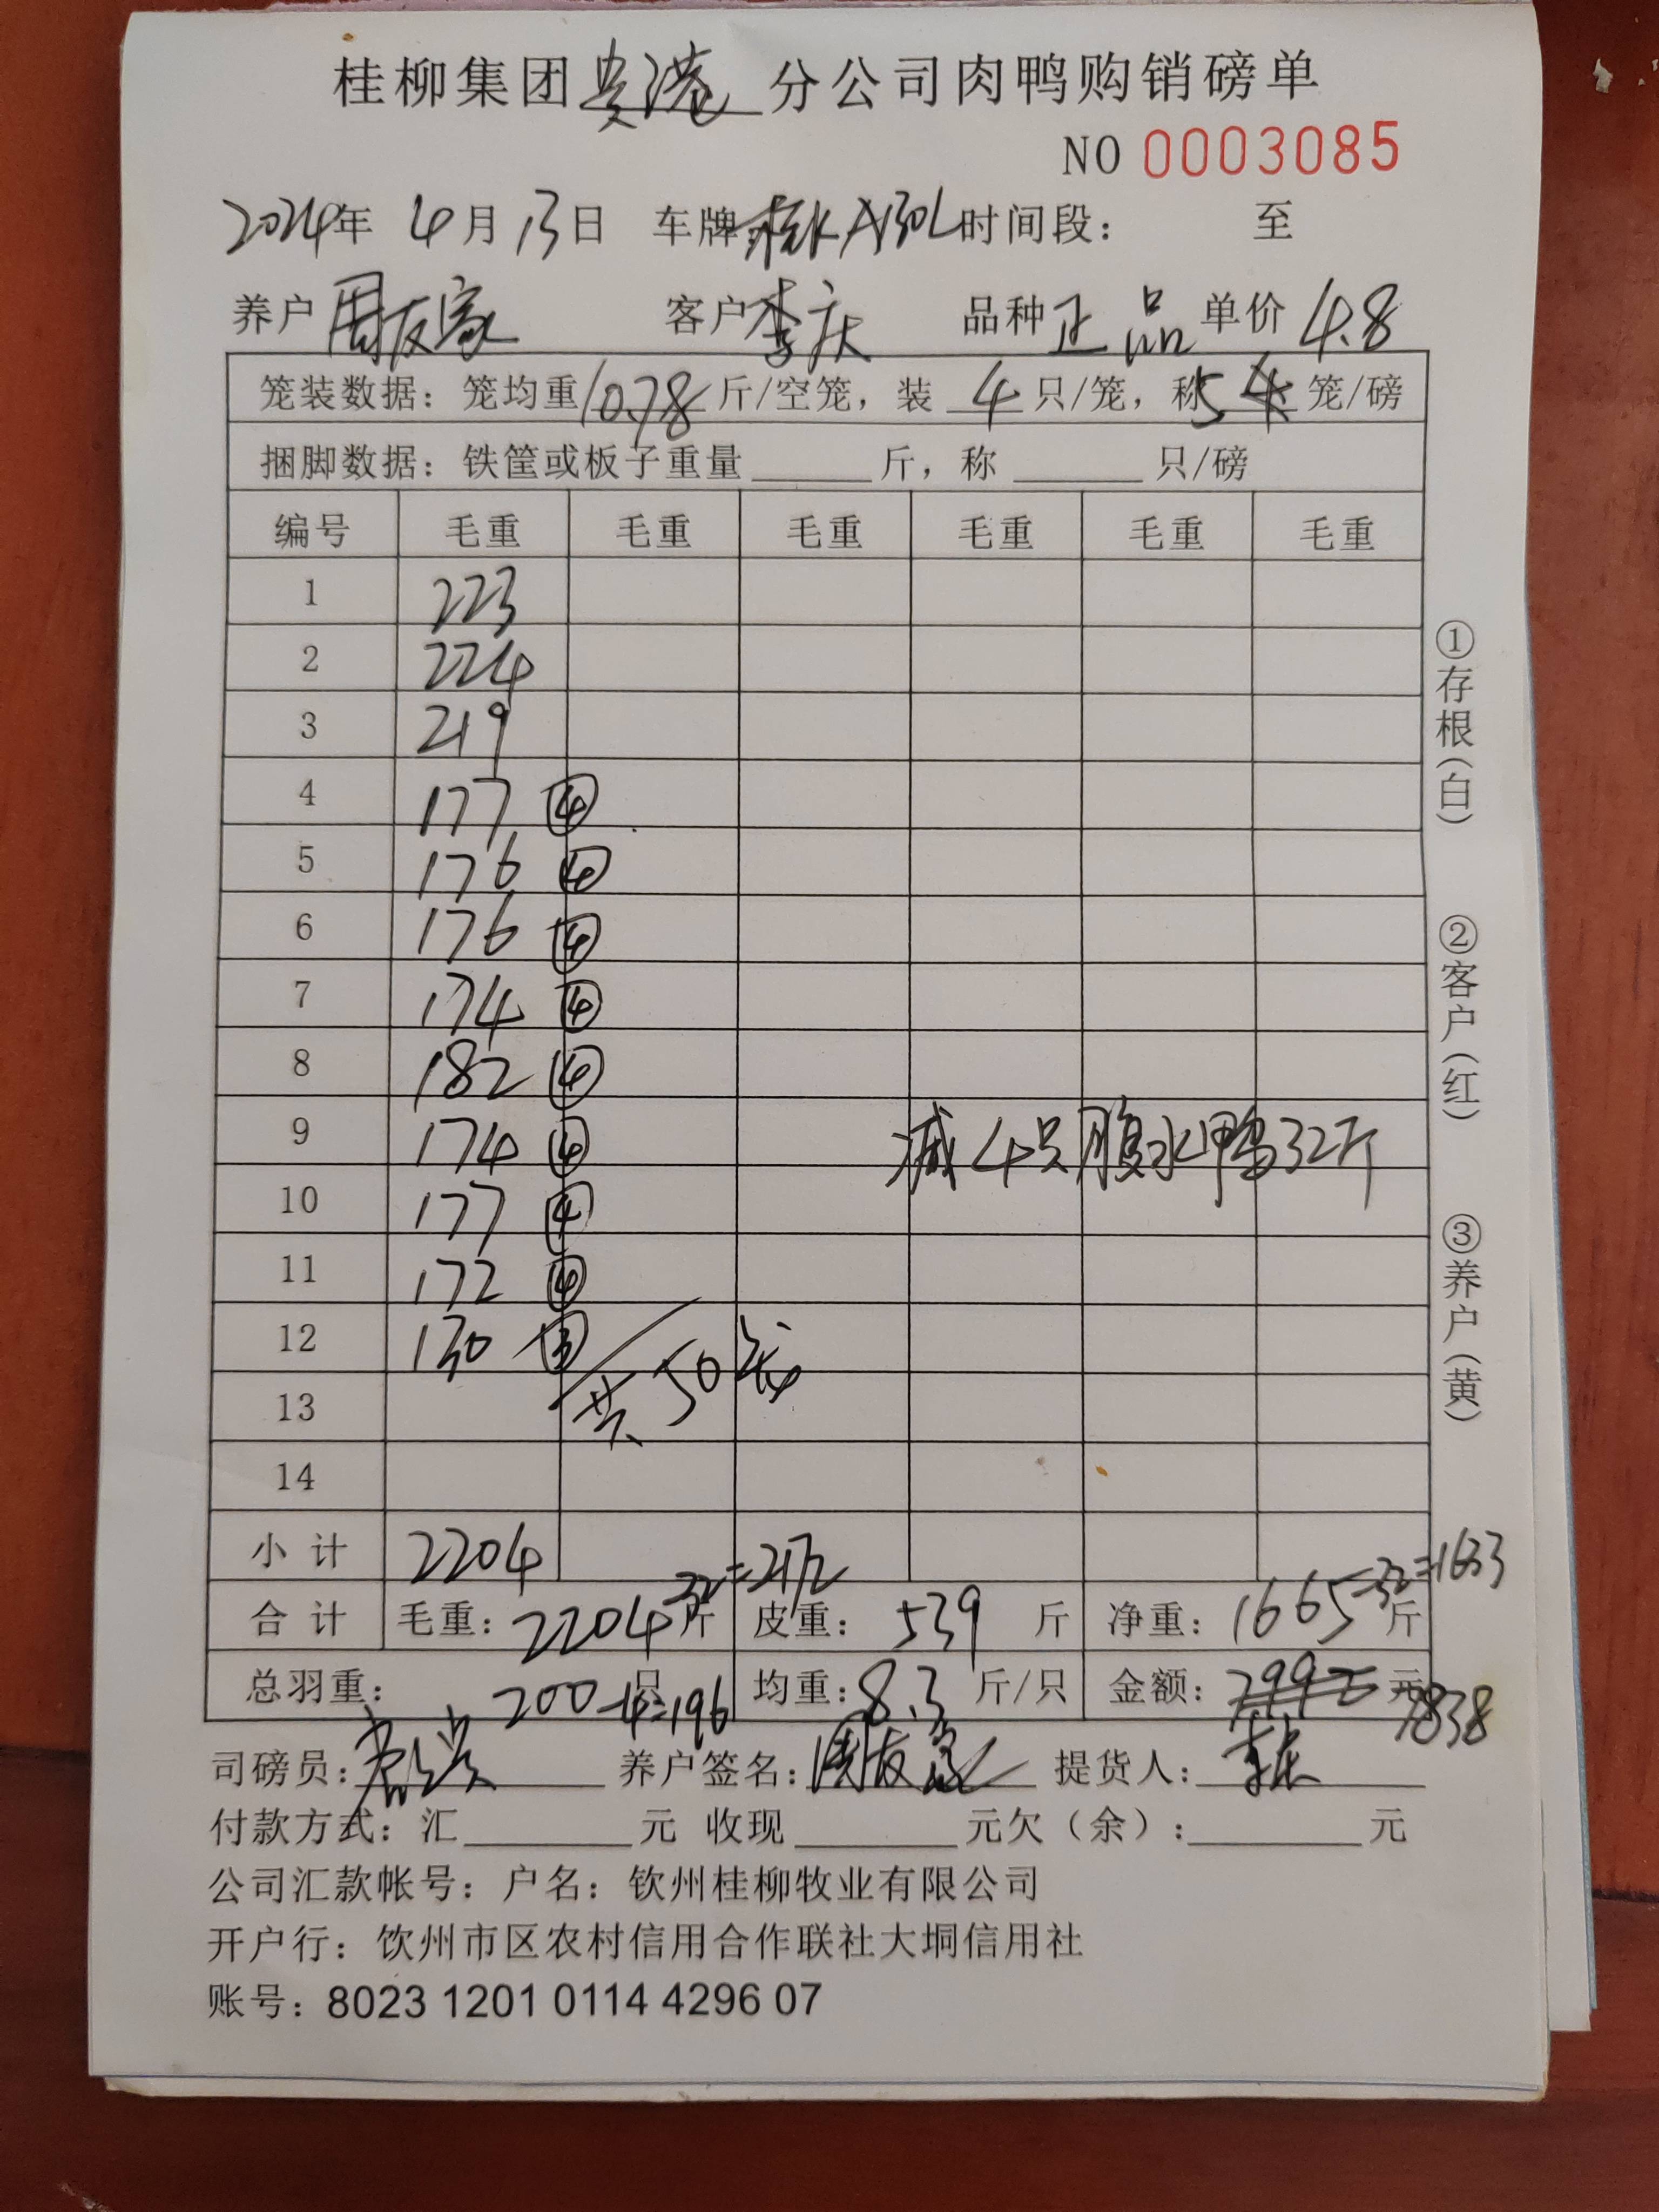 桂柳集团贵港分公司肉鸭购销磅单
NO 0003085
2024年 4月13日 车牌 时间段： 至
养户 周友家 客户 李庆 品种 正品 单价 4.8
笼装数据：笼均重10.78斤/空笼，装 4 只/笼，称 5 4 笼/磅
捆脚数据：铁筐或板子重量 斤，称 只/磅
编号 毛重 毛重 毛重 毛重 毛重 毛重
1 223
2 224
3 219
4 177 ④
5 176 ④
6 176 ④
7 174 ④
8 182 ④
9 174 ④ 减4只腹水鸭32斤
10 177 ④
11 172 ④
12 130 ③
共50笼
13
14
小计 2204
合计 毛重：2204斤 -32=2172 皮重：539 斤 净重：1665斤 -32=1633
总羽重： 200只 -4=196 均重：8.3 斤/只 金额：7992元 7838
司磅员： 养户签名：周友家 提货人：李庆
付款方式：汇 元 收现 元欠（余）： 元
公司汇款帐号：户名：钦州桂柳牧业有限公司
开户行：钦州市区农村信用合作联社大垌信用社
账号：8023 1201 0114 4296 07
①存根（白）
②客户（红）
③养户（黄）